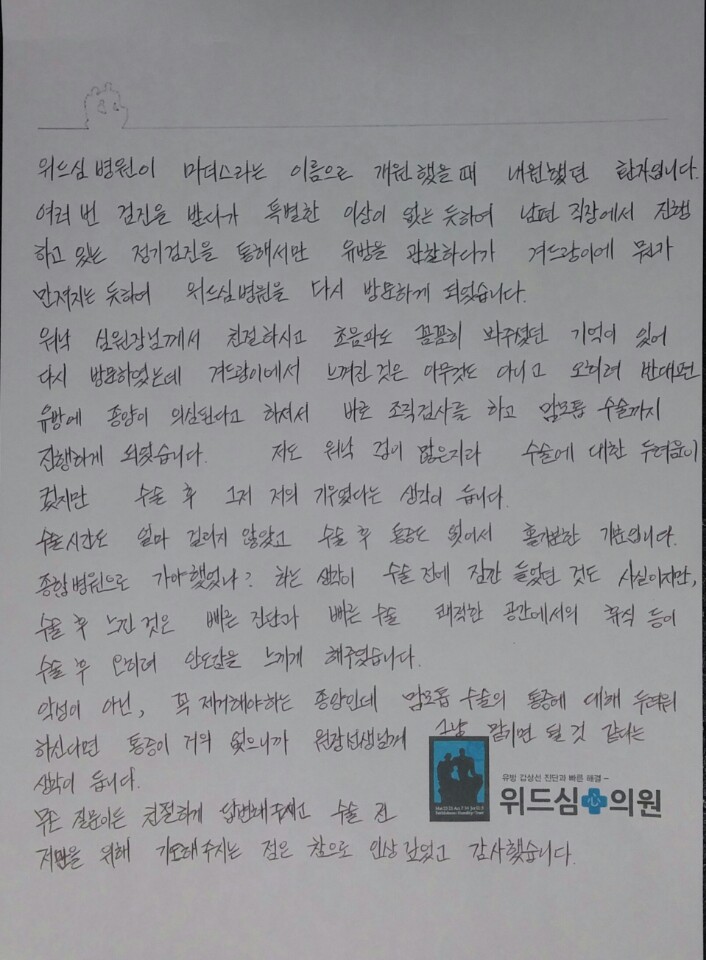 위드심병원이 마더스라는 이름으로 개원했을때 내원했던 환자입니다.
여러 번 검진을 받다가 특별한 이상이 없는 듯하여 남편 직장에서 진행
하고 있는 정기검진을 통해서만 유방을 관찰하다가 겨드랑이에 뭐가
만져지는 듯하여 위드심병원을 다시 방문하게 되었습니다.
워낙 심원장님께서 친절하시고 초음파도 꼼꼼히 봐주셨던 기억이 있어
다시 방문하였는데 겨드랑이에서 느껴진 것은 아무것도 아니고 오히려 반대편
유방에 종양이 의심된다고 하셔서 바로 조직검사를 하고 맘모톱 수술까지
진행하게 되었습니다. 저도 워낙 겁이 많은지라 수술에 대한 두려움이
컸지만 수술 후 그저 저의 기우였다는 생각이 듭니다.
수술시간도 얼마 걸리지 않았고 수술 후 통증도 없어서 홀가분한 기분입니다.
종합병원으로 가야했었나? 하는 생각이 수술 전에 잠깐 들었던 것도 사실이지만,
수술 후 느낀 것은 빠른 진단과 빠른 수술 쾌적한 공간에서의 휴식 등이
수술 후 오히려 안도감을 느끼게 해주었습니다.
악성이 아닌, 꼭 제거해야하는 종양인데 맘모톱 수술의 통증에 대해 두려워
하신다면 통증이 거의 없으니까 원장선생님께 그냥 맡기면 될 것 같다는
생각이 듭니다.
유방 갑상선 진단과 빠른 해결
위드심心의원
무슨 질문이든 친절하게 답변해주시고 수술 전
저만을 위해 기도해주시는 점은 참으로 인상깊었고 감사했습니다.